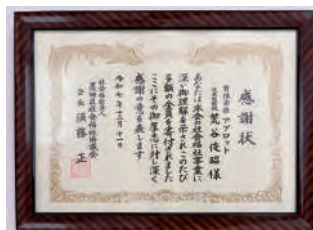 感謝状
有限会社アプロット
荒谷俊昭様
あなたは本会の社会福祉事業に
深い御理解を示されこのたび
多額の金員を寄付されました
ここにその御厚志に対し深く
感謝の意を表します
令和七年十二月十一日
社会福祉法人
会長 須藤正